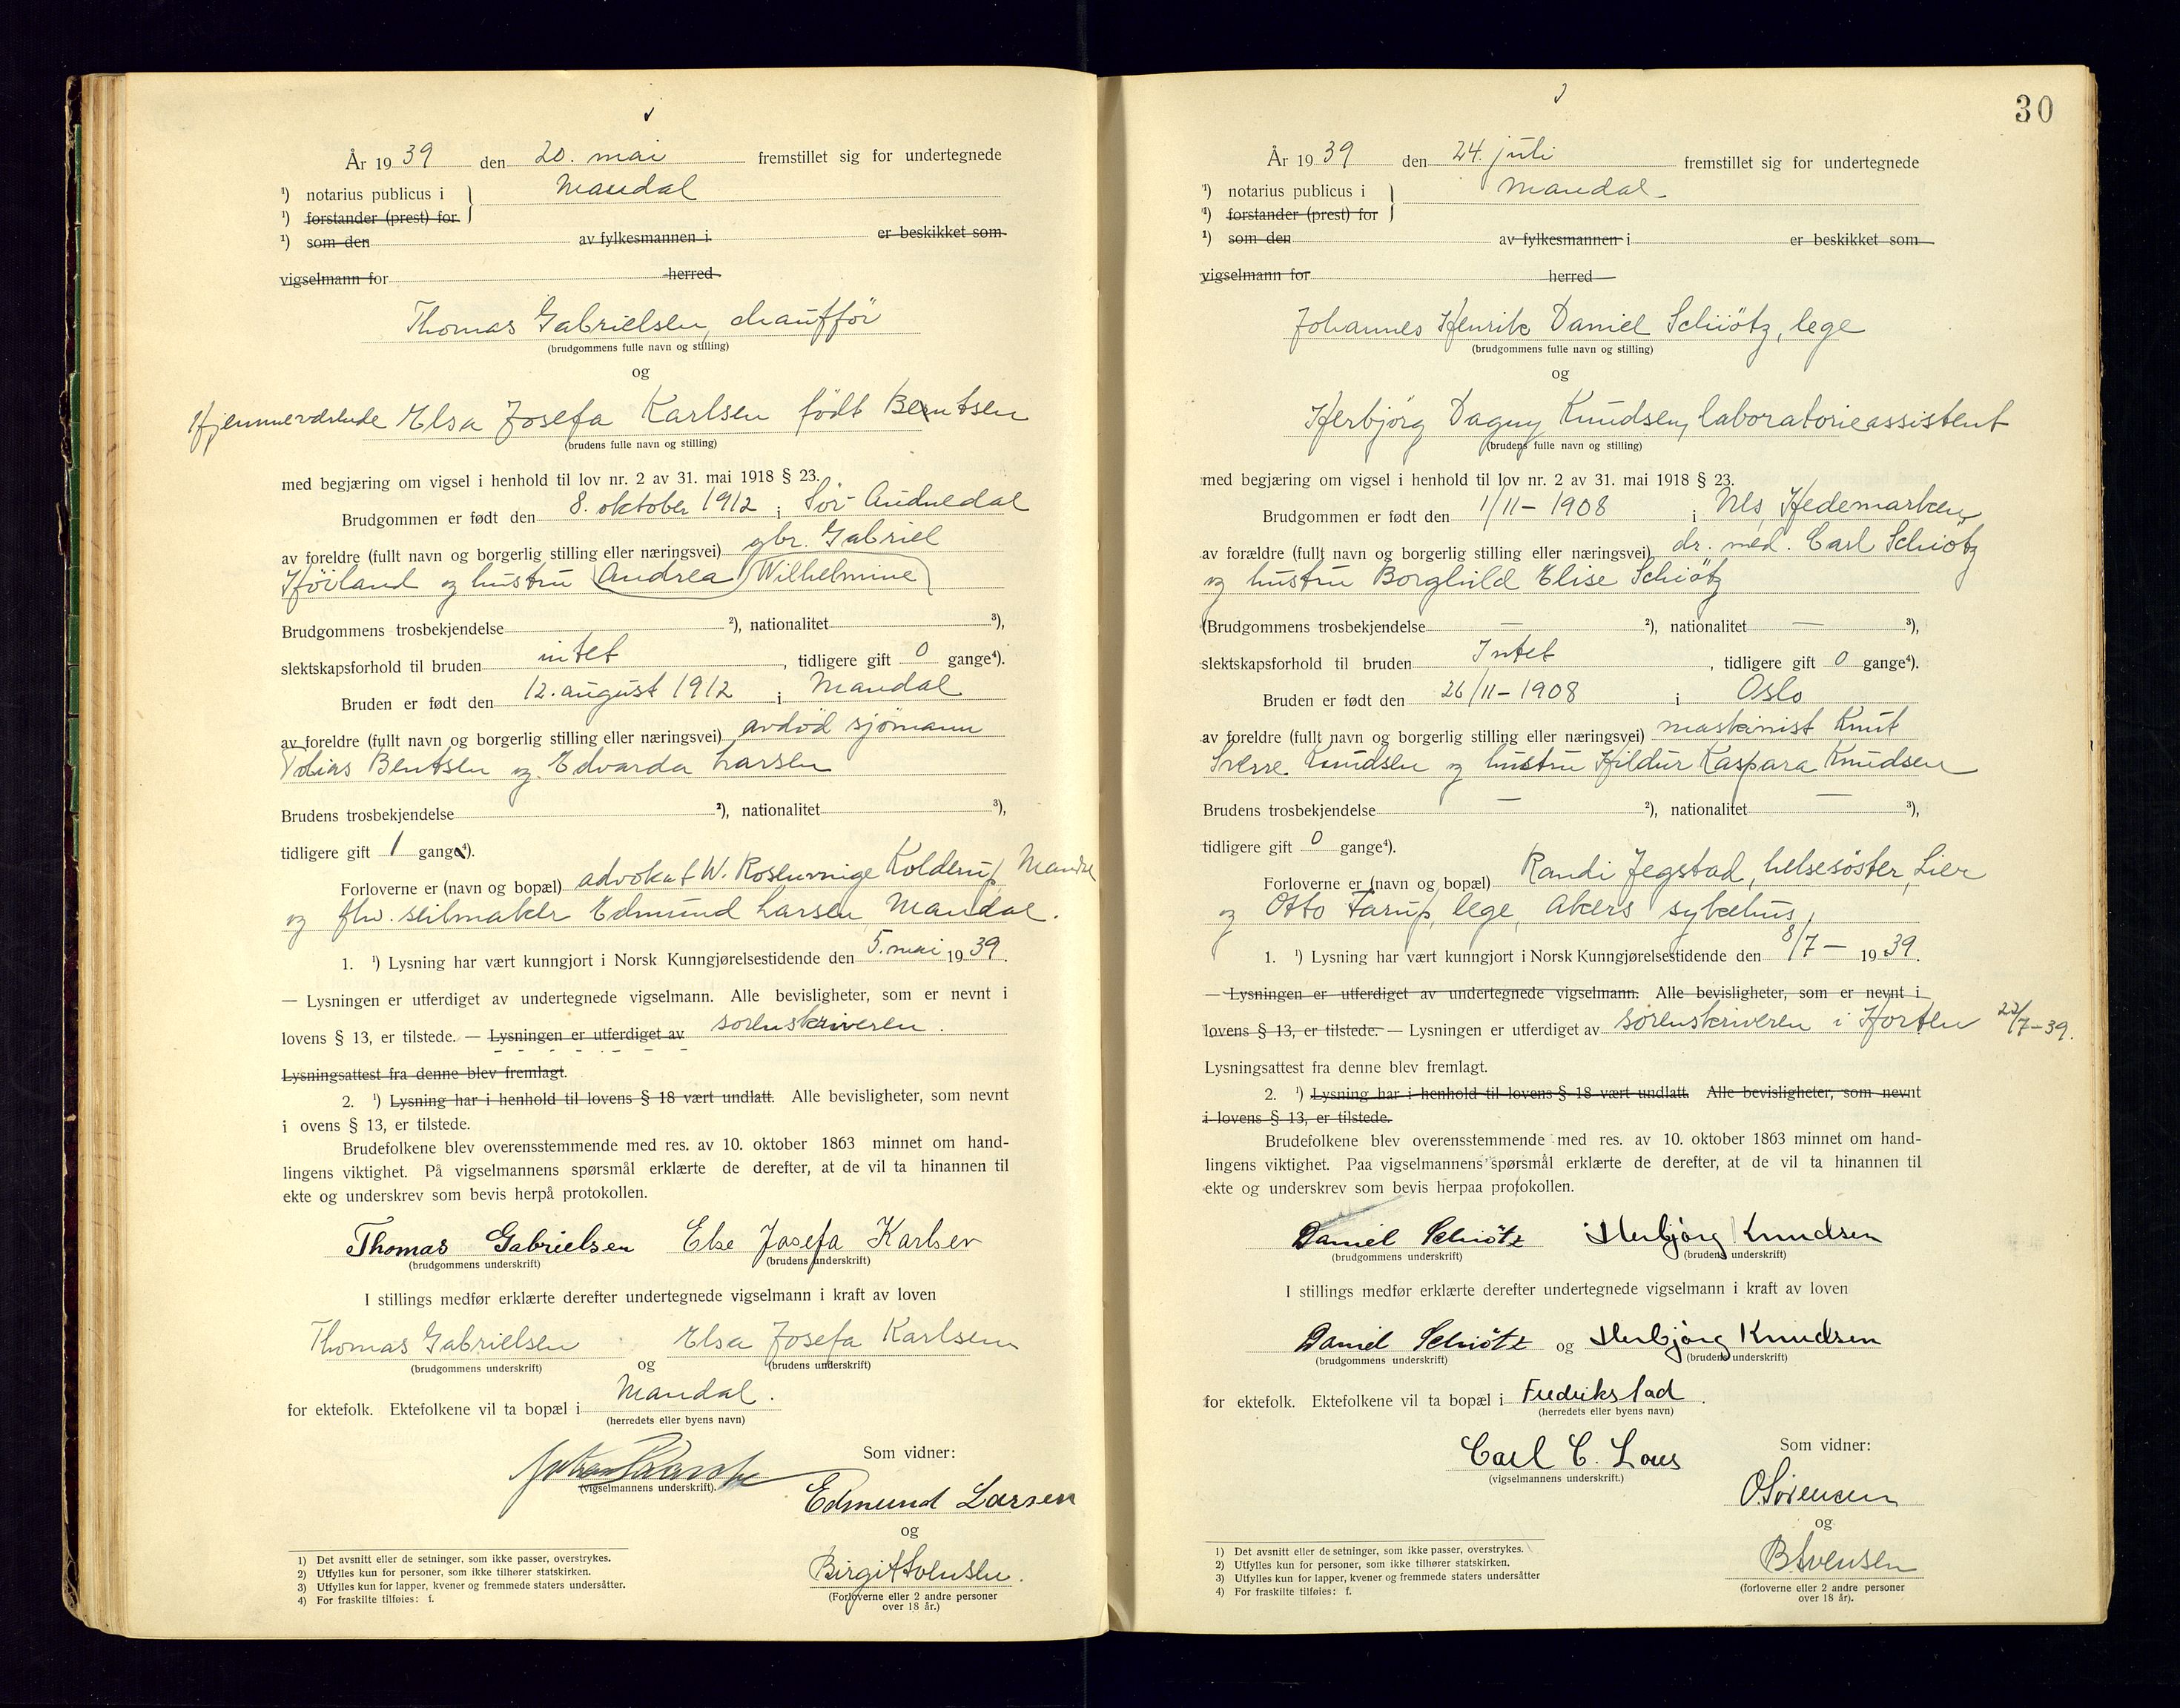 År 19 39 den 20. mai fremstillet sig for undertegnede
¹) notarius publicus i } Mandal
¹) forstander (prest) for
¹) som den av fylkesmannen i er beskikket som
vigselmann for herred
Thomas Gabrielsen, chauffør
(brudgommens fulle navn og stilling)
og
Hjemmeværende Elsa Josefa Karlsen født Bentsen
(brudens fulle navn og stilling)
med begjæring om vigsel i henhold til lov nr. 2 av 31. mai 1918 § 23.
Brudgommen er født den 8. oktober 1912 i Sör-Audnedal
av foreldre (fullt navn og borgerlig stilling eller næringsvei) gbr. Gabriel
Höiland og hustru Andrea Wilhelmine
Brudgommens trosbekjendelse ²), nationalitet ³),
slektskapsforhold til bruden intet, tidligere gift 0 gange⁴).
Bruden er født den 12. august 1912 i Mandal
av foreldre (fullt navn og borgerlig stilling eller næringsvei) avdöd sjömann
Tobias Bentsen og Edvarda Larsen
Brudens trosbekjendelse ²), nationalitet ³),
tidligere gift 1 gange⁴).
Forloverne er (navn og bopæl) advokat W. Rosenvinge Kolderup, Mandal
og fhv. seilmaker Edmund Larsen, Mandal.
1. ¹) Lysning har vært kunngjort i Norsk Kunngjørelsestidende den 5. mai 19 39.
— Lysningen er utferdiget av undertegnede vigselmann. Alle bevisligheter, som er nevnt i
lovens § 13, er tilstede. — Lysningen er utferdiget av sorenskriveren.
Lysningsattest fra denne blev fremlagt.
2. ¹) Lysning har i henhold til lovens § 18 vært undlatt. Alle bevisligheter, som nevnt
i ovens § 13, er tilstede.
Brudefolkene blev overensstemmende med res. av 10. oktober 1863 minnet om hand-
lingens viktighet. På vigselmannens spørsmål erklærte de derefter, at de vil ta hinannen til
ekte og underskrev som bevis herpå protokollen.
Thomas Gabrielsen Else Josefa Karlsen
(brudgommens underskrift) (brudens underskrift)
I stillings medfør erklærte derefter undertegnede vigselmann i kraft av loven
Thomas Gabrielsen og Elsa Josefa Karlsen
(brudgommens underskrift) (brudens underskrift)
for ektefolk. Ektefolkene vil ta bopæl i Mandal.
(herredets eller byens navn)
Som vidner:
(vigselmannens underskrift).
Edmund Larsen
og
Birgit Svensen.
(Forloverne eller 2 andre personer
over 18 år.)
1) Det avsnitt eller de setninger, som ikke passer, overstrykes.
2) Utfylles kun for personer, som ikke tilhører statskirken.
3) Utfylles kun for lapper, kvener og fremmede staters undersåtter.
4) For fraskilte tilføies: f.
30
År 19 39 den 24. juli fremstillet sig for undertegnede
¹) notarius publicus i } Mandal
¹) forstander (prest) for
¹) som den av fylkesmannen i er beskikket som
vigselmann for herred
Johannes Henrik Daniel Schiötz, lege
(brudgommens fulle navn og stilling)
og
Herbjörg Dagny Knudsen, laboratorieassistent
(brudens fulle navn og stilling)
med begjæring om vigsel i henhold til lov nr. 2 av 31. mai 1918 § 23.
Brudgommen er født den 1/11 - 1908 i Nes, Hedemarken,
av forældre (fullt navn og borgerlig stilling eller næringsvei) dr. med. Carl Schiötz
og hustru Borghild Elise Schiötz
(Brudgommens trosbekjendelse — ²), nationalitet — ³),
slektskapsforhold til bruden Intet, tidligere gift 0 gange⁴).
Bruden er født den 26/11 - 1908 i Oslo
av foreldre (fullt navn og borgerlig stilling eller næringsvei) maskinist Knut
Sverre Knudsen og hustru Hildur Kaspara Knudsen
Brudens trosbekjendelse — ²), nationalitet — ³),
tidligere gift 0 gange⁴).
Forloverne er (navn og bopæl) Randi Jegstad, helsesöster, Lier
og Otto Tarup, lege, Akers sykehus,
1. ¹) Lysning har vært kunngjort i Norsk Kunngjørelsestidende den 8/7 — 19 39.
— Lysningen er utferdiget av undertegnede vigselmann. Alle bevisligheter, som er nevnt i
lovens § 13, er tilstede. — Lysningen er utferdiget av sorenskriveren i Horten 22/7 - 39.
Lysningsattest fra denne blev fremlagt.
2. ¹) Lysning har i henhold til lovens § 18 vært undlatt. Alle bevisligheter, som nevnt
i lovens § 13, er tilstede.
Brudefolkene blev overensstemmende med res. av 10. oktober 1863 minnet om hand-
lingens viktighet. Paa vigselmannens spørsmål erklærte de derefter, at de vil ta hinannen til
ekte og underskrev som bevis herpaa protokollen.
Daniel Schiötz Herbjörg Knudsen
(brudgommens underskrift) (brudens underskrift)
I stillings medfør erklærte derefter undertegnede vigselmann i kraft av loven
Daniel Schiötz og Herbjörg Knudsen
(brudgommens underskrift) (brudens underskrift)
for ektefolk. Ektefolkene vil ta bopæl i Fredrikstad.
(herredets eller byens navn)
Carl C. Lous
(vigselmannens underskrift.)
Som vidner:
O. Sörensen
og
B. Svensen
(forloverne eller 2 andre personer
over 18 år).
1) Det avsnitt eller de setninger, som ikke passer, overstrykes.
2) Utfylles kun for personer, som ikke tilhører statskirken.
3) Utfylles kun for lapper, kvener og fremmede staters undersåtter
4) For fraskilte tilføies: f.